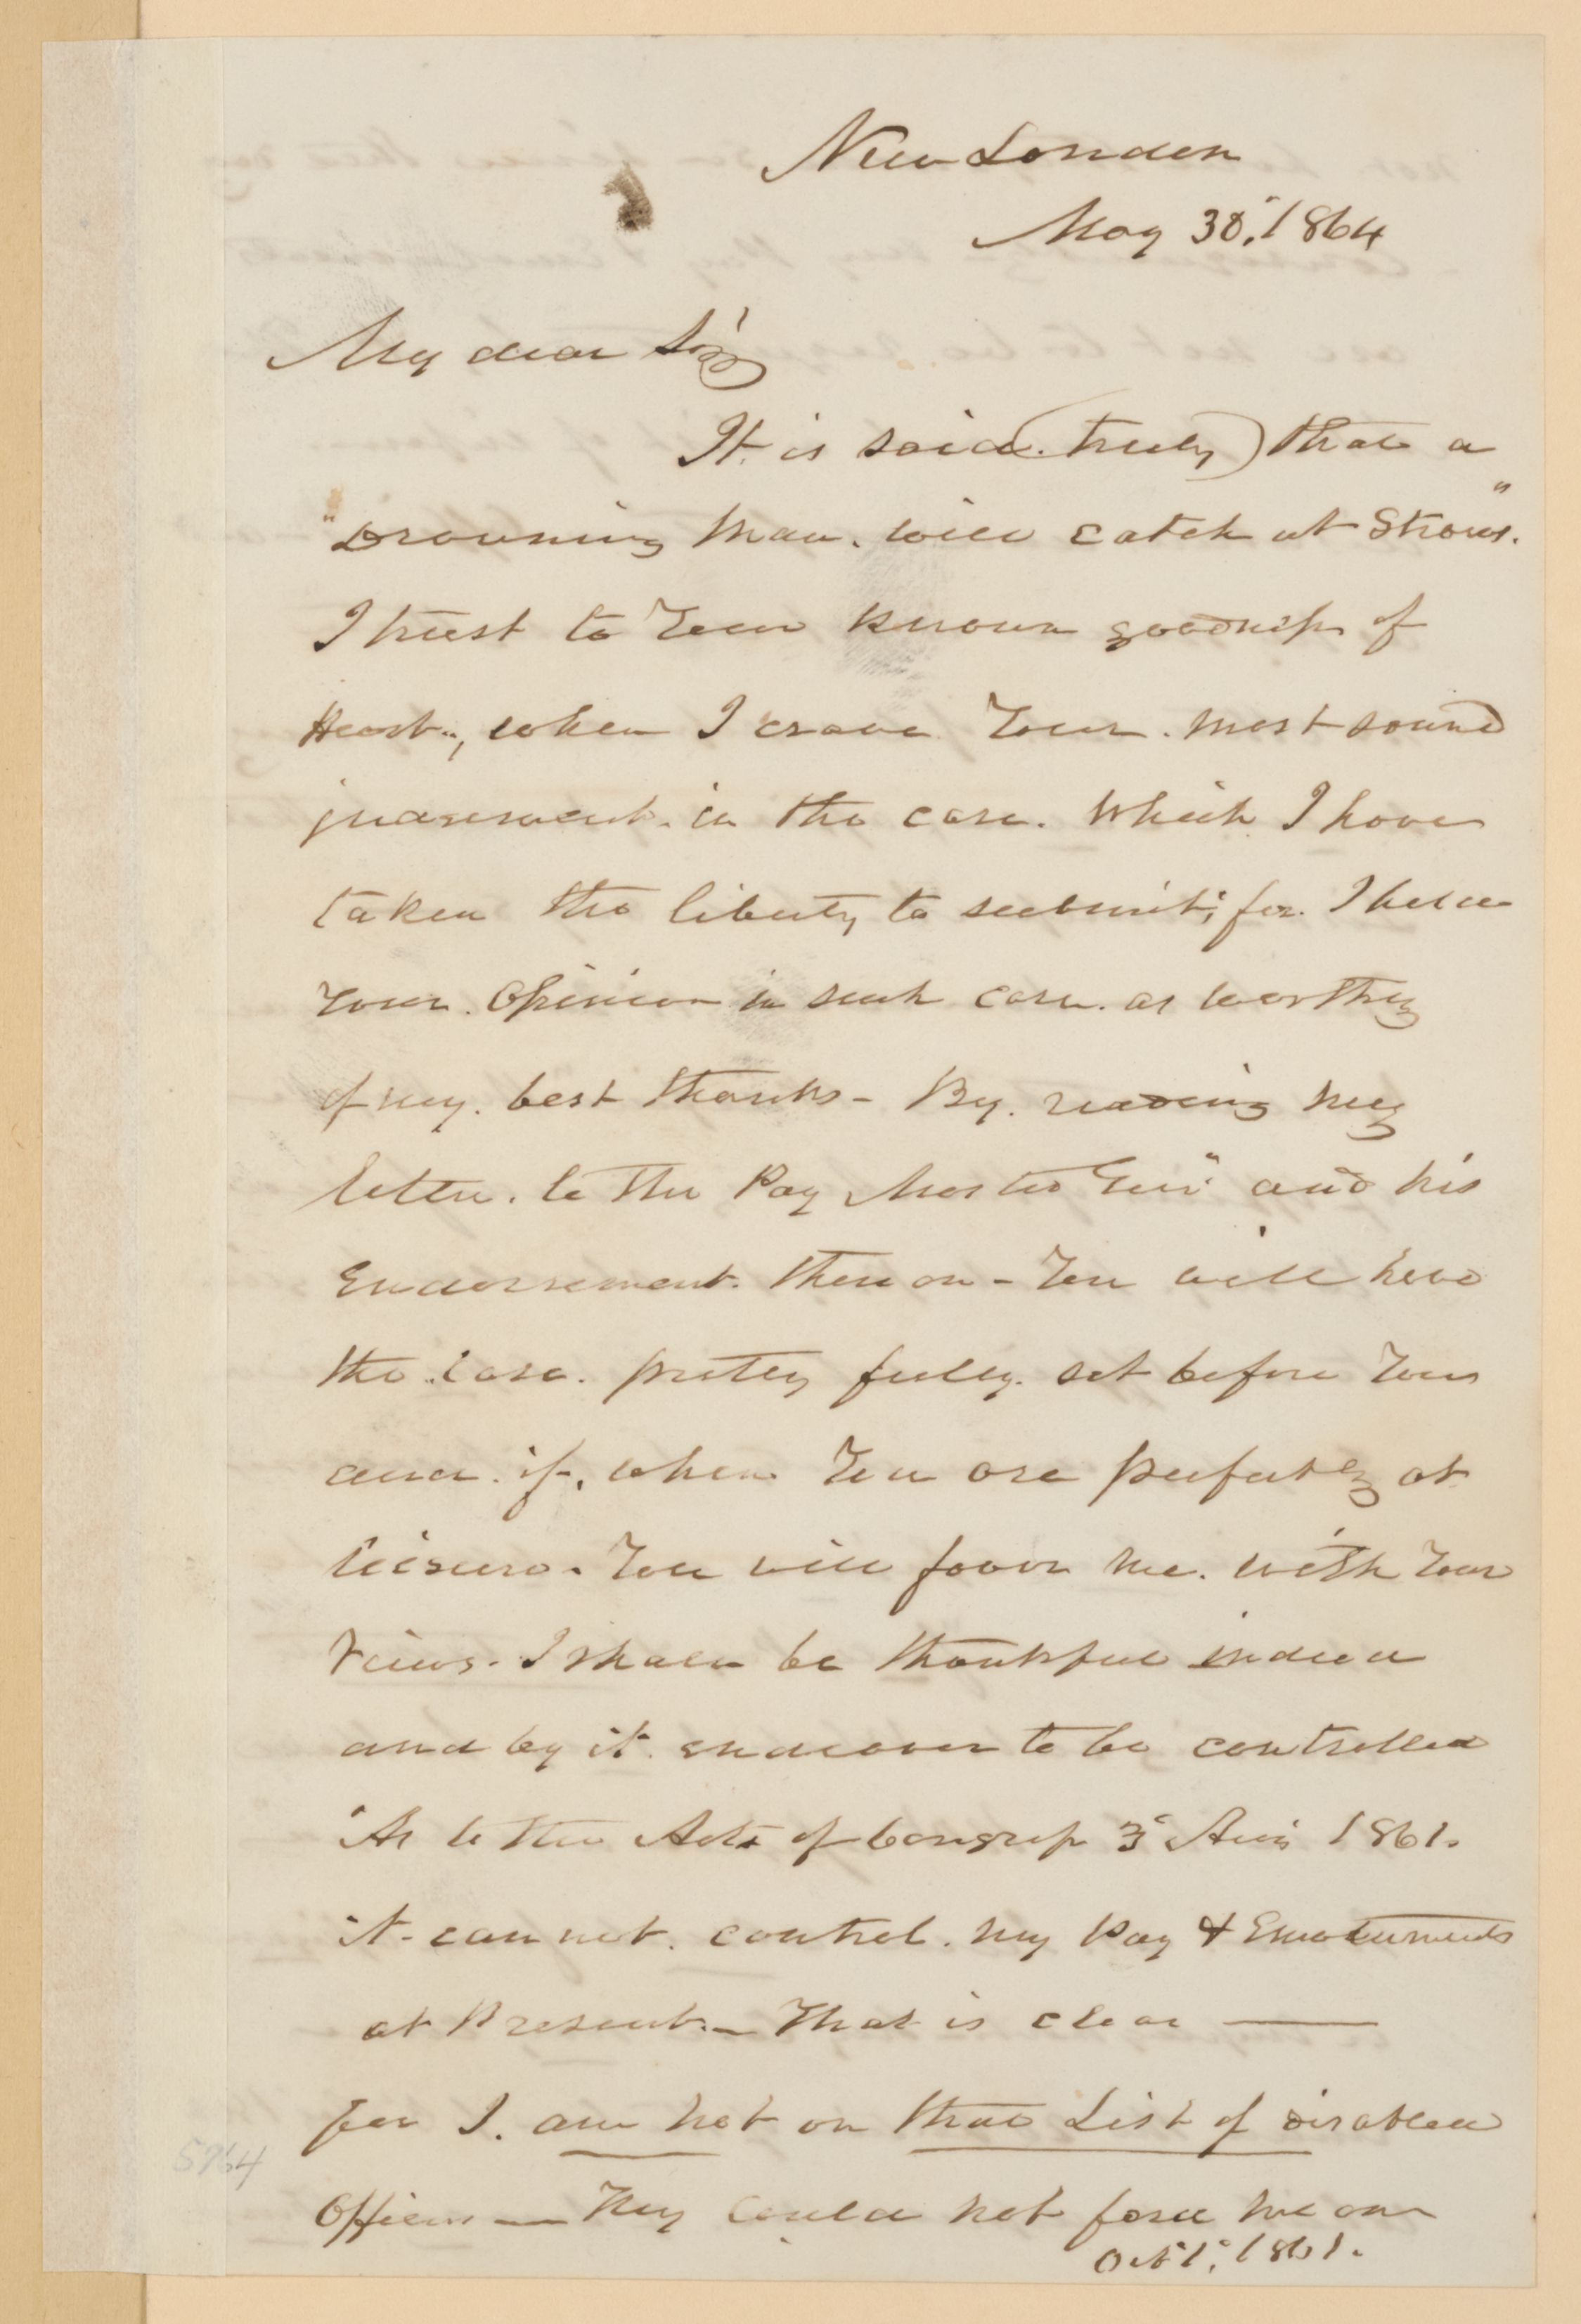 New London
May 30, 1864
My dear Sir
It is said (truly) that a
"Drowning man, will catch at Straws."
I trust to Your known goodness of
Heart, when I crave Your most sound
judgement in the case. Which I have
taken the liberty to submit; for I hold
Your Opinion in such case as worthy
of my best thanks - By reading my
letter to the Pay Master Gen' and his
Endorsement thereon - You will have
the case pretty fully set before You
and if, when You are perfectly at
leisure. You will favor me with Your
Views. I shall be thankful indeed
and by it endeavor to be controlled
As to the Acts of Congress 3" Aug 1861.
it can not control my Pay & Emoluments
at Present. - That is clear —
for I am not on that List of disabled
Officers — They could not force me on
Oct 1, 1861.
5764